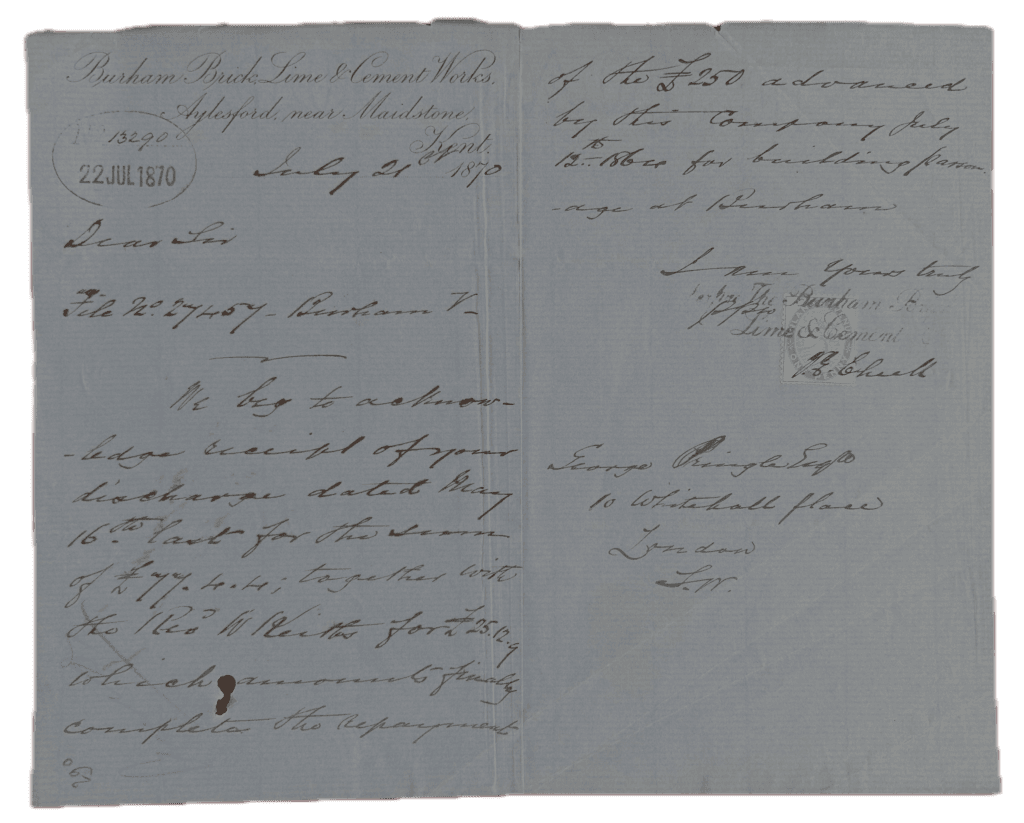 Burham Brick, Lime & Cement Works.
Aylesford, near Maidstone,
Kent.
13290
22 JUL 1870
July 21 1870
Dear Sir
File No. 27457 - Burham V-
We beg to acknow-
-ledge receipt of your
discharge dated May
16th last for the sum
of £77.4.4; together with
the Revd W Keiths for £25.12.9
which amounts finally
complete the repayment
of the £250 advanced
by this Company July
12th 1864 for building parson
-age at Burham
I am Yours truly
The Burham
Lime & Cement
George Pringle Esqre
10 Whitehall place
London
S.W.